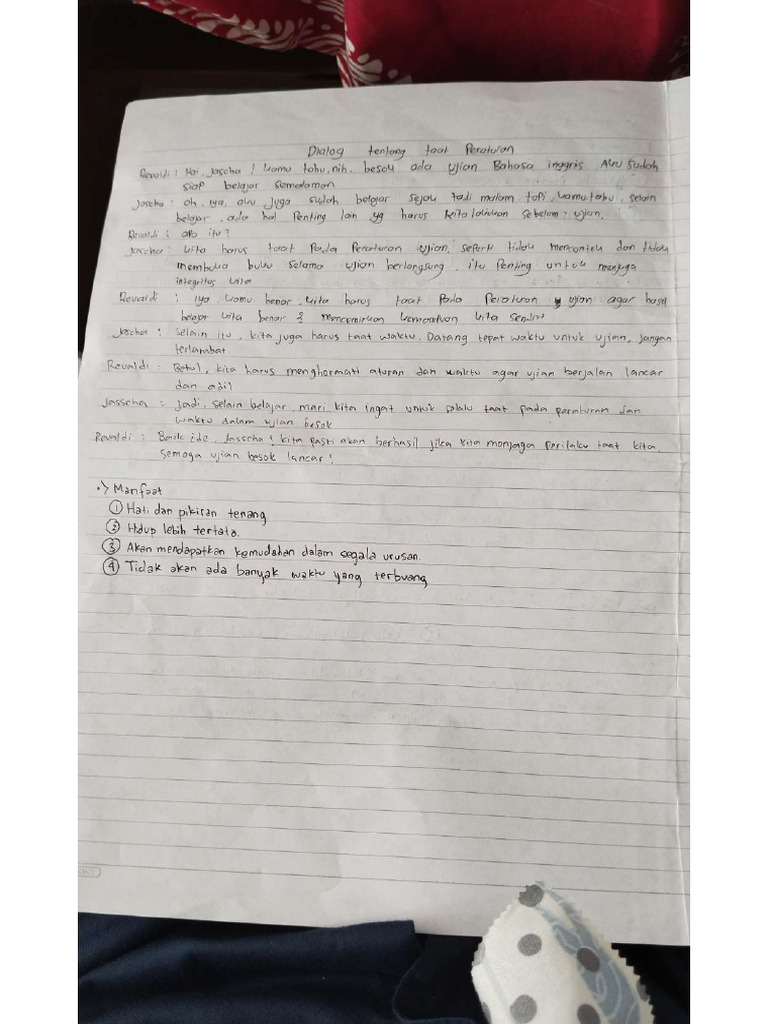 Dialog tentang taat Peraturan
Revaldi : Hai, Jascha ! kamu tahu, nih. besok ada Ujian Bahasa inggris Aku sudah
siap belajar semalaman
Jascha : oh, iya, aku juga sudah belajar sejak tadi malam tapi, kamu tahu, selain
belajar, ada hal Penting lain yg harus kita lakukan sebelum ujian.
Revaldi : apa itu ?
Jascha : kita harus taat Pada Peraturan ujian, seperti tidak mencontek dan tidak
membuka buku selama ujian berlangsung. itu Penting untuk menjaga
integritas kita
Revaldi : iya kamu benar. kita harus taat Pada Peraturan ujian agar hasil
belajar kita benar 2 mencerminkan kemampuan kita sendiri
Jascha : selain itu, kita juga harus taat waktu. Datang tepat waktu untuk ujian, jangan
terlambat
Revaldi : Betul, kita harus menghormati aturan dan waktu agar ujian berjalan lancar
dan adil
Jasscha : jadi, selain belajar, mari kita ingat untuk selalu taat pada peraturan dan
waktu dalam ujian besok
Revaldi : Baik ide, Jasscha ! kita pasti akan berhasil jika kita menjaga perilaku taat kita.
Semoga ujian besok lancar !
•> Manfaat
① Hati dan pikiran tenang
② Hidup lebih tertata.
③ Akan mendapatkan kemudahan dalam segala urusan.
④ Tidak akan ada banyak waktu yang terbuang